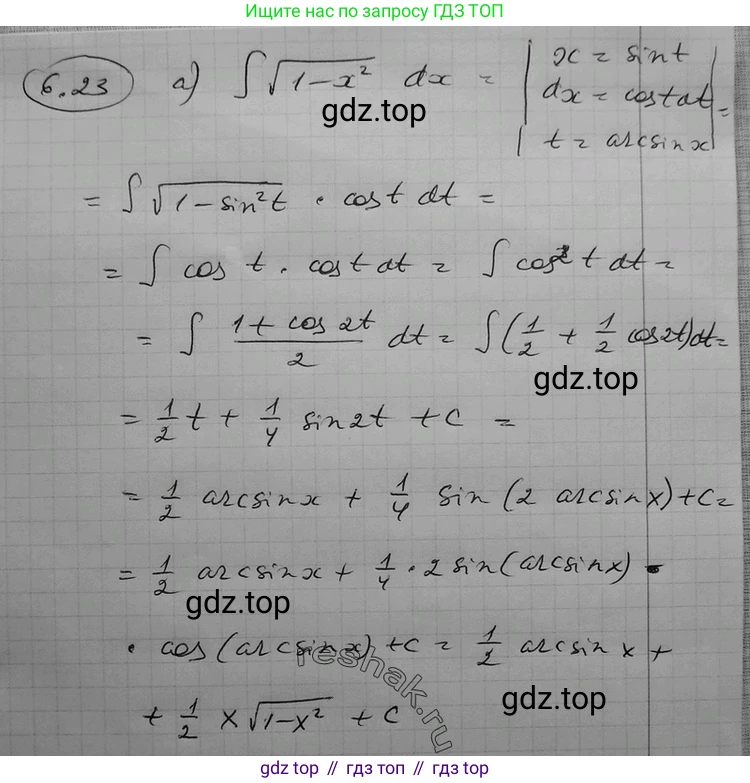 Ищите нас по запросу ГДЗ ТОП
6.23 а) ∫√(1-x²) dx = | x = sin t
dx = cos t dt =
t = arcsin x |
gdz.top
= ∫√(1-sin²t) · cos t dt =
= ∫ cos t · cos t dt = ∫ cos² t dt =
= ∫ (1 + cos 2t)/2 dt = ∫(1/2 + 1/2 cos 2t)dt =
gdz.top
= 1/2 t + 1/4 sin 2t + C =
= 1/2 arcsin x + 1/4 sin (2 arcsin x) + C =
= 1/2 arcsin x + 1/4 · 2 sin(arcsin x) ·
gdz.top
· cos (arcsin x) + C = 1/2 arcsin x +
reshak.ru
gdz.top
+ 1/2 x √(1-x²) + C
gdz.top // gdz.top // gdz.top // gdz.top